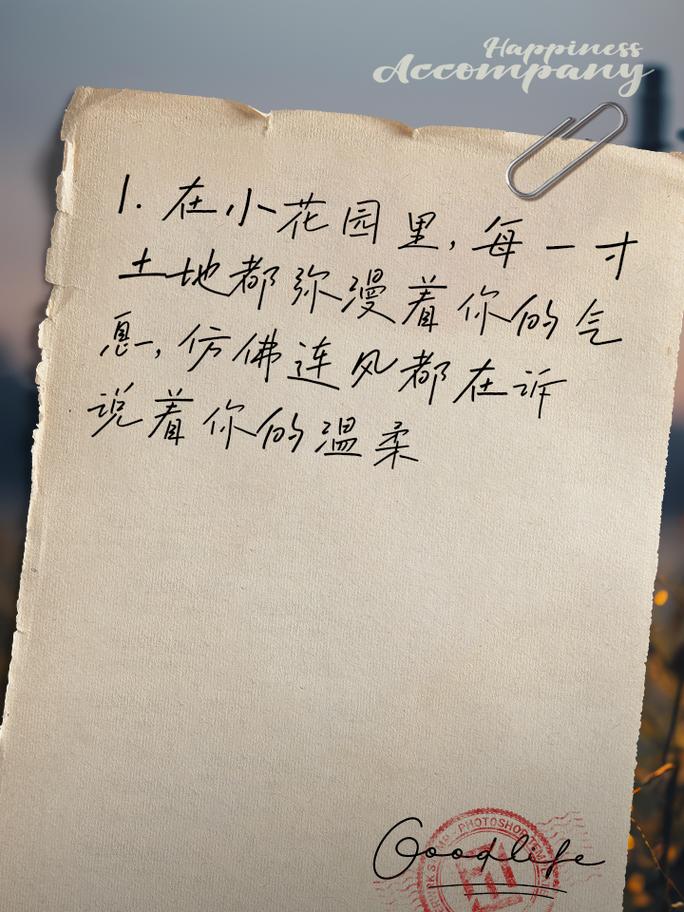 Happiness
Accompany
1. 在小花园里，每一寸
土地都弥漫着你的气
息，仿佛连风都在诉
说着你的温柔
PHOTOSHOP
Goodlife